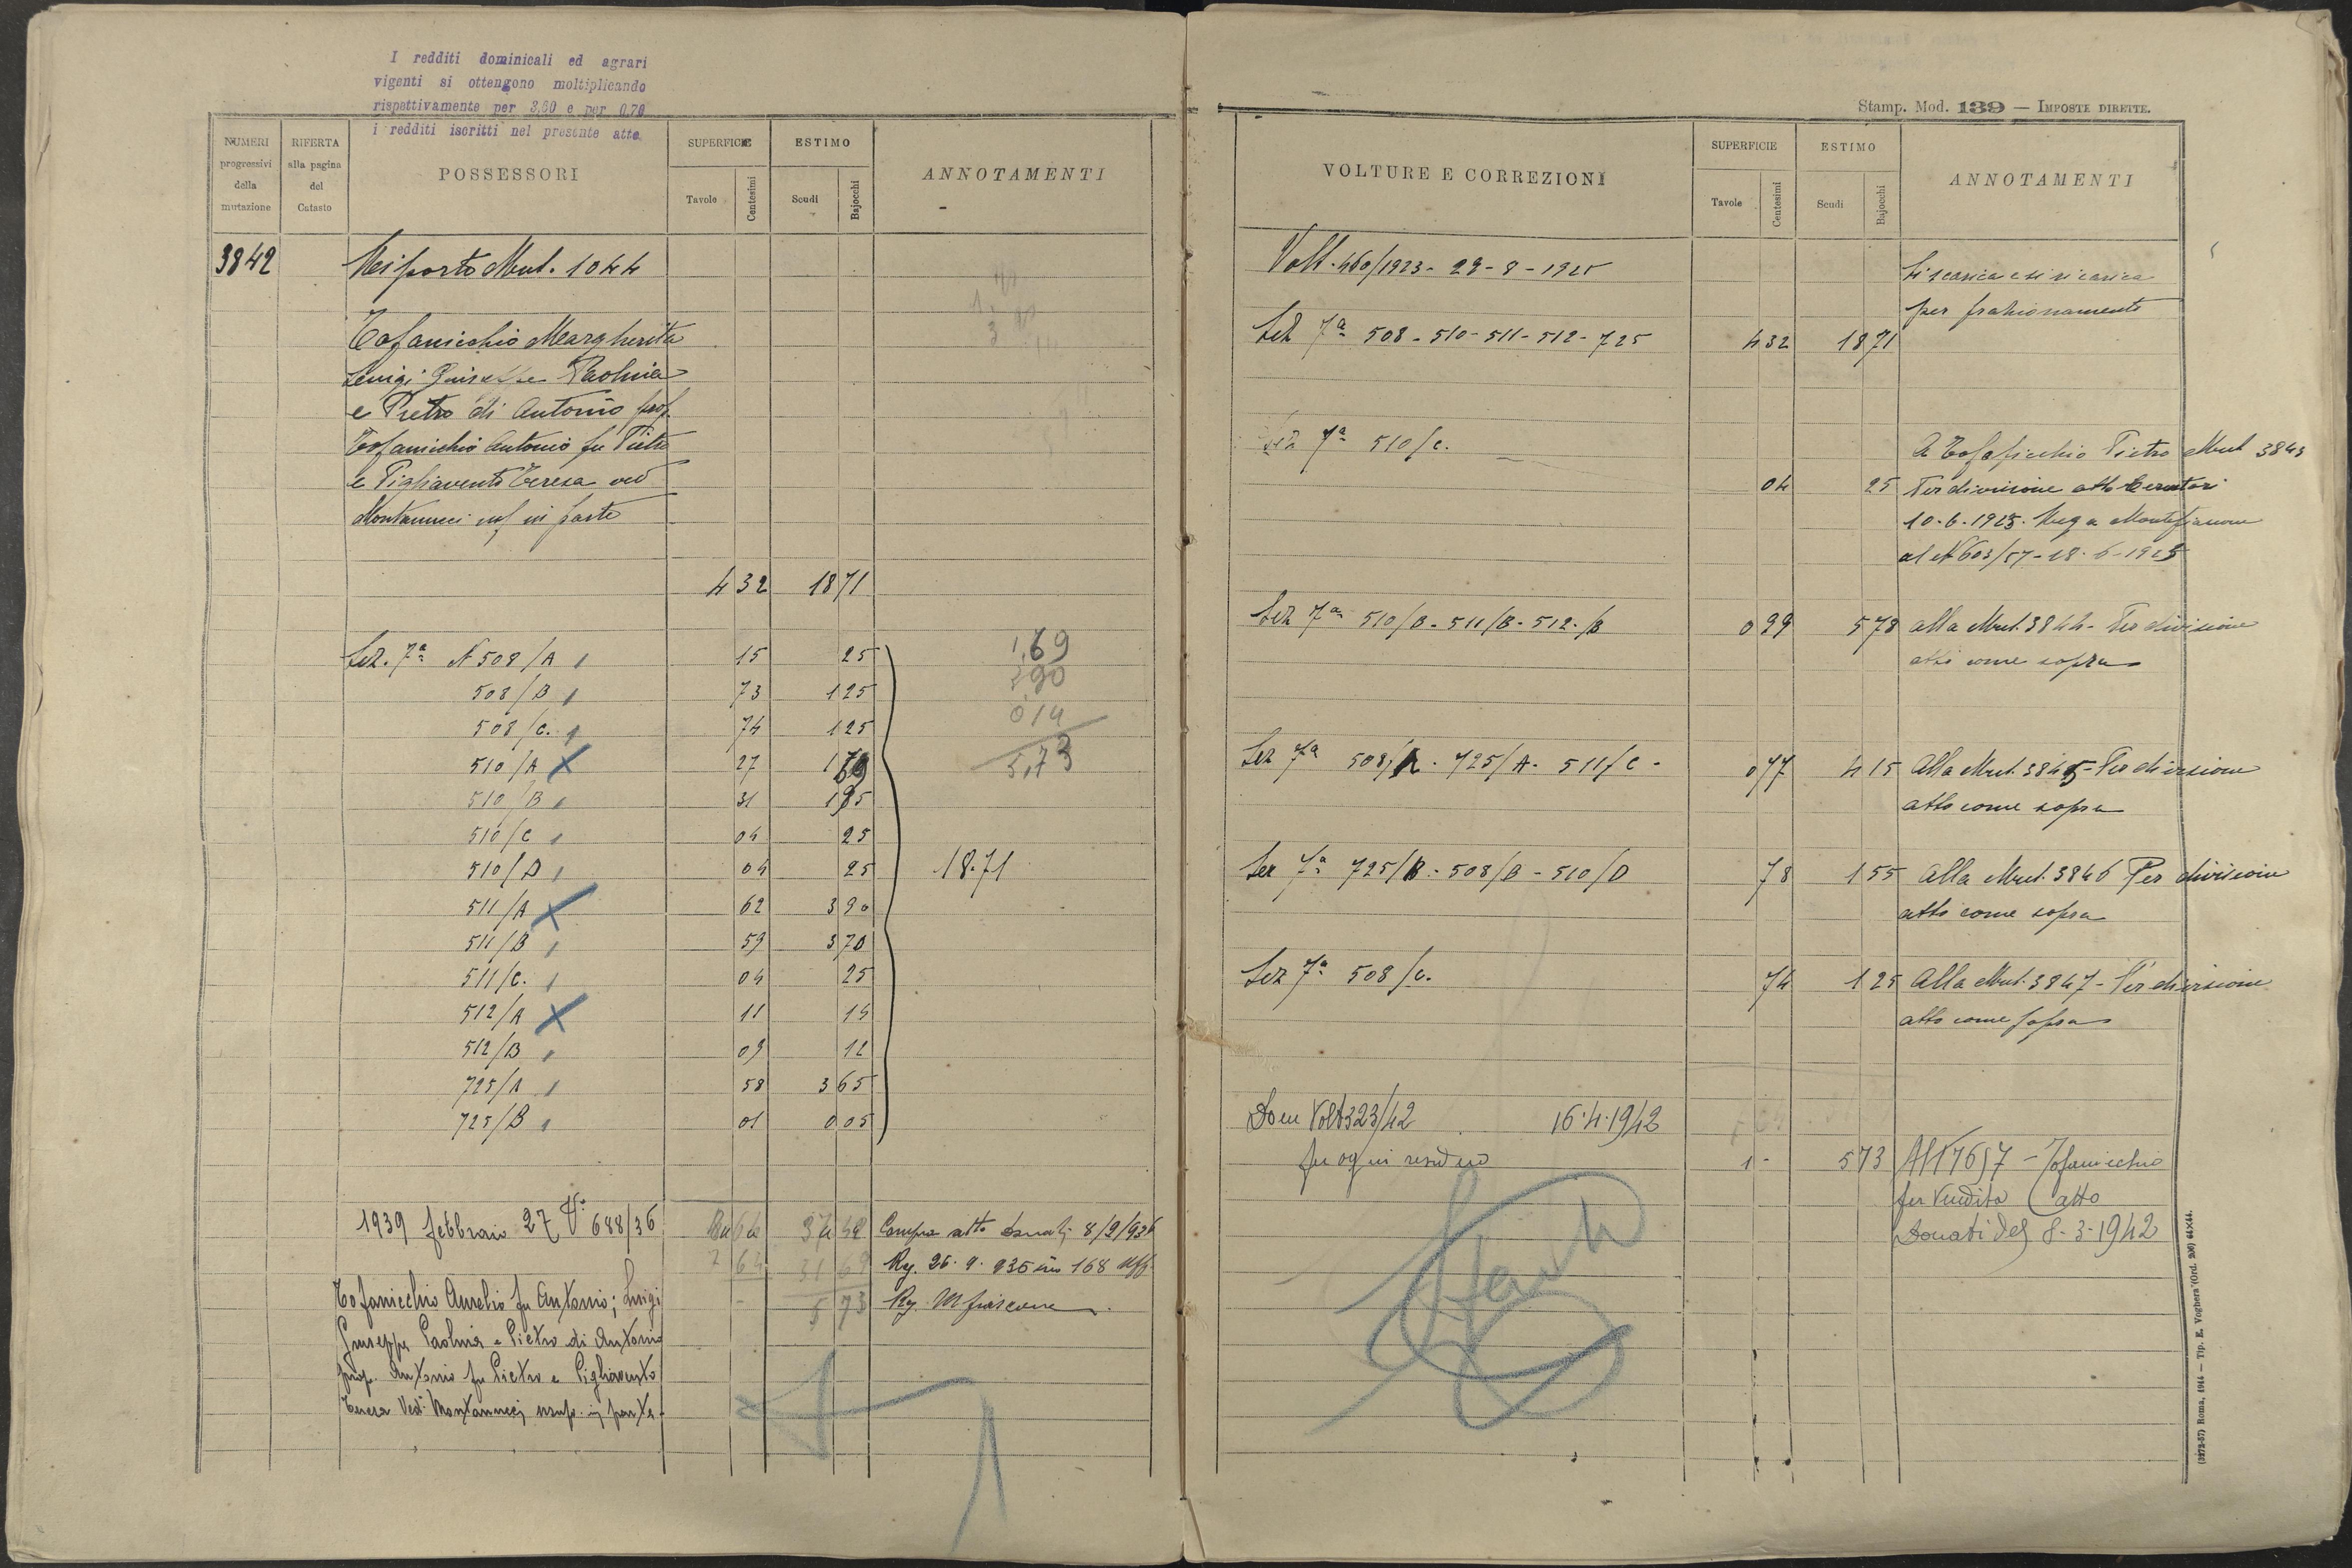 I redditi dominicali ed agrari
vigenti si ottengono moltiplicando
rispettivamente per 3,60 e per 0,70
i redditi iscritti nel presente atto.
NUMERI progressivi della mutazione
RIFERTA alla pagina del Catasto
POSSESSORI
SUPERFICIE
Tavole Centesimi
ESTIMO
Scudi Bajocchi
ANNOTAMENTI
3842 Riporto Mut. 1044
Tofanicchio Margherita
Luigi Giuseppe Paolina
e Pietro di Antonio prop.
Tofanicchio Antonio fu Pietro
e Pigliavento Teresa ved
Montanucci usf in parte
4 32 18 71
Sez. 7ª N 508/A 15 25 1,69
508/B 73 1 25 390
508/C. 74 1 25 014
510/A 27 1 69 5,73
510/B 31 1 95
510/C 04 25
510/D 04 25 18.71
511/A 62 3 90
511/B 59 3 70
511/C. 04 25
512/A 11 14
512/B 09 12
725/A 58 3 65
725/B 01 0 05
1939 febbraio 27 Vª 688/36 Compra atto Donati 8/9/936
7 64 31 69 Rg. 26. 9. 936 n 168 Uff.
5 73 Rg. Mfiascone
Tofanicchio Aurelio fu Antonio; Luigi
Giuseppe Paolina e Pietro di Antonio
prop. Antonio fu Pietro e Pigliavento
Teresa Ved. Montannucci usuf. in parte.
Stamp. Mod. 139 — IMPOSTE DIRETTE.
VOLTURE E CORREZIONI
SUPERFICIE
Tavole Centesimi
ESTIMO
Scudi Bajocchi
ANNOTAMENTI
Volt. 460/1923 - 29 - 8 - 1925 Si scarica e si ricarica
per frazionamento
Sez 7ª 508 - 510 - 511 - 512 - 725 4 32 18 71
Sez 7ª 510/C. A Tofanicchio Pietro Mut 3843
04 25 Per divisione atto
10. 6. 1925. Reg a Montefiascone
al N 603/57 - 18. 6 - 1925
Sez 7ª 510/B - 511/B - 512/B 0 99 5 78 alla Mut. 3844 - Per divisione
atto come sopra
Sez 7ª 508/A - 725/A - 511/C - 0 77 4 15 Alla Mut. 3845 - Per divisione
atto come sopra
Sez 7ª 725/B - 508/B - 510/D 78 1 55 Alla Mut. 3846 Per divisione
atto come sopra
Sez 7ª 508/C. 74 1 25 Alla Mut. 3847 - Per divisione
atto come sopra
Dom Volt 323/42 16.4.1942
per ogni residuo 1 - 5 73 7657 - Tofanicchio
per Vendita atto
Donati del 8-3-1942
(3172-37) Roma, 1914 — Tip. E. Voghera (Ord. 206) 44×44.